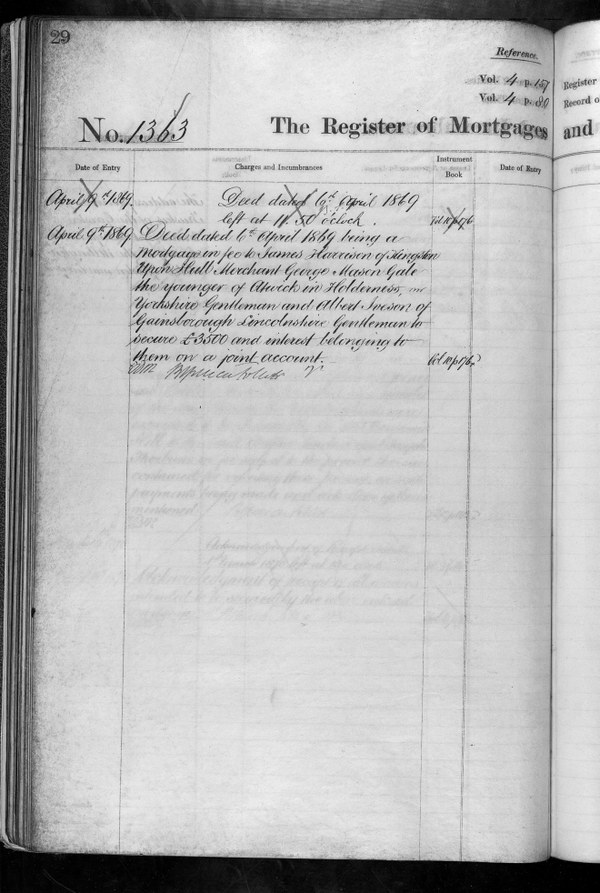 29
Reference.
Vol. 4 p. 157
Vol. 4 p. 80
Register
Record o
No. 1363
The Register of Mortgages
and
Date of Entry
Charges and Incumbrances
Instrument Book
Date of Entry
April 9th 1869.
Deed dated 6th April 1869
left at 11.50 o'clock.
Vol 10 p 176
April 9th 1869
Deed dated 6th April 1869 being a
mortgage in fee to James Harrison of Kingston
Upon Hull Merchant George Mason Gale
the younger of Atwick in Holderness,
Yorkshire Gentleman and Albert Iveson of
Gainsborough Lincolnshire Gentleman to
secure £3500 and interest belonging to
them on a joint account.
Vol 10 p 176